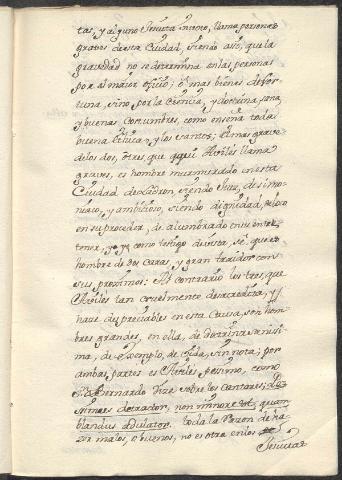 tas, y alguno Jesuita intento, llama personas
graves de esta Ciudad, siendo assi, que la
gravedad no se determina en las personas
por el maior oficio, ô mas bienes de for-
tuna, sino por la Ciencia, y doctrina sana,
y buenas Costumbres, como enseña toda
buena Ethica, y los santos; el mas grave
de los dos, ô tres que aqui Aviles llama
graves, es hombre murmurado en esta
Ciudad de Ladron siendo Juez, de simo-
niaco, y ambicioso, siendo dignidad, de loco
en su proceder, de alumbrado en su enten-
tener, y yo como testigo de vista, sé que es
hombre de dos caras, y gran traidor con
sus proximos: Al contrario los tres, que
Aviles tan cruelmente desacredita, y
haze despreciables en esta Causa, son hom-
bres grandes, en ella, de dottrina sanissi-
ma, de exemplo, de vida, sin nota; por
ambas partes es Aviles pessimo, como
S. Bernardo dize sobre los Cantares;
detractor, non minor est, quam
blandus adulator. toda la Razon de ha-
zer malos, o buenos, no es otra en los
Jesuitas